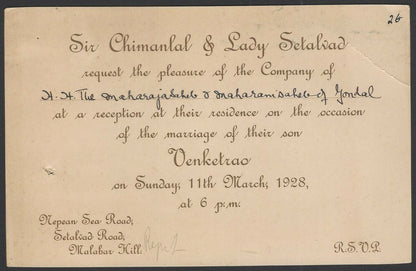 26
Sir Chimanlal & Lady Setalvad
request the pleasure of the Company of
H. H. The Maharajasaheb & Maharanisaheb of Gondal
at a reception at their residence on the occasion
of the marriage of their son
Venketrao
on Sunday, 11th March, 1928,
at 6 p.m.
Nepean Sea Road,
Setalvad Road,
Malabar Hill.
R.S.V.P.